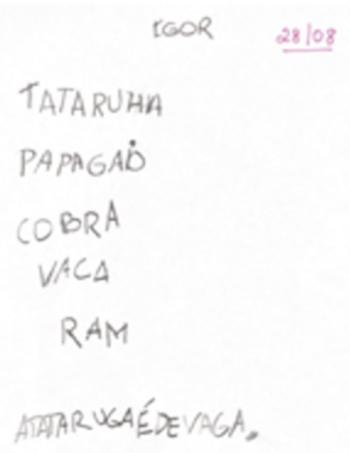 IGOR 28/08
TATARUHA
PAPAGAO
COBRA
VACA
RAM
ATATARUGAÉDEVAGA.